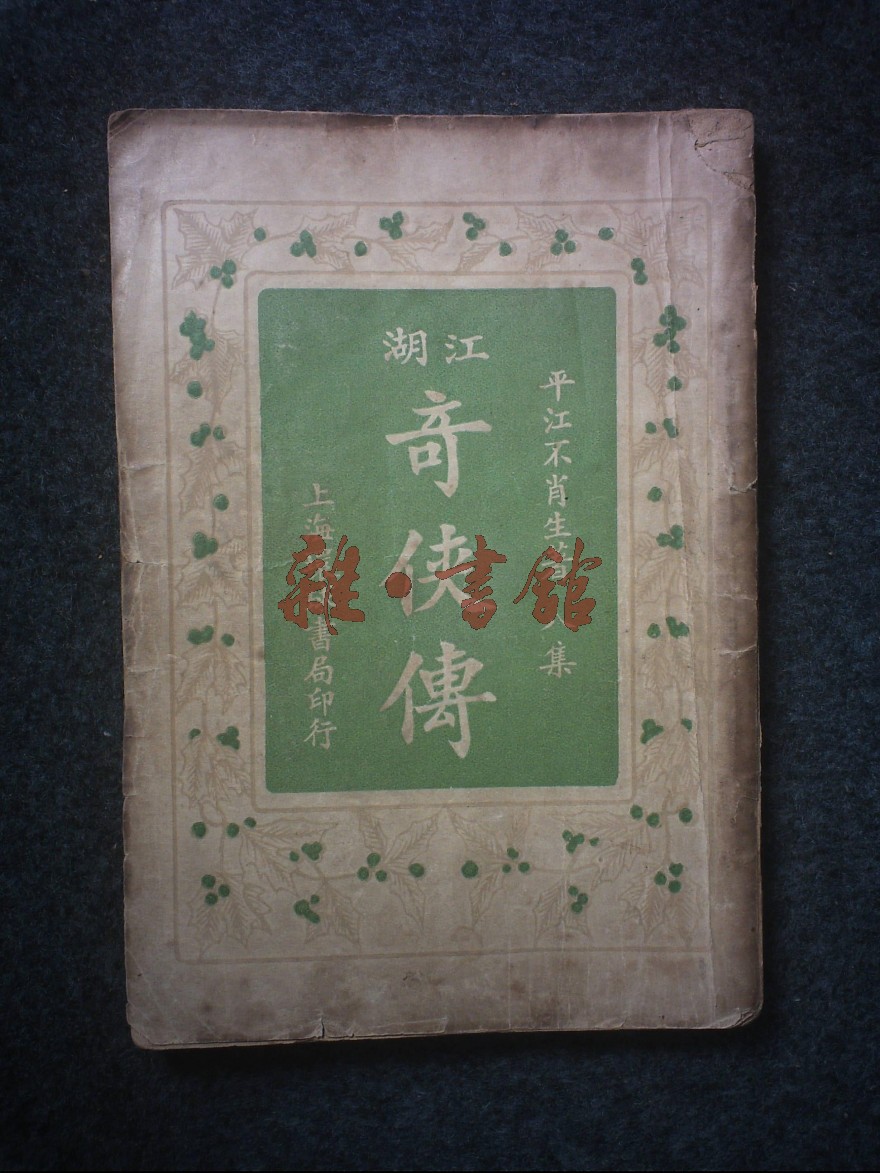 平江不肖生集
江湖
奇俠傳
上海書局印行
雜·書館